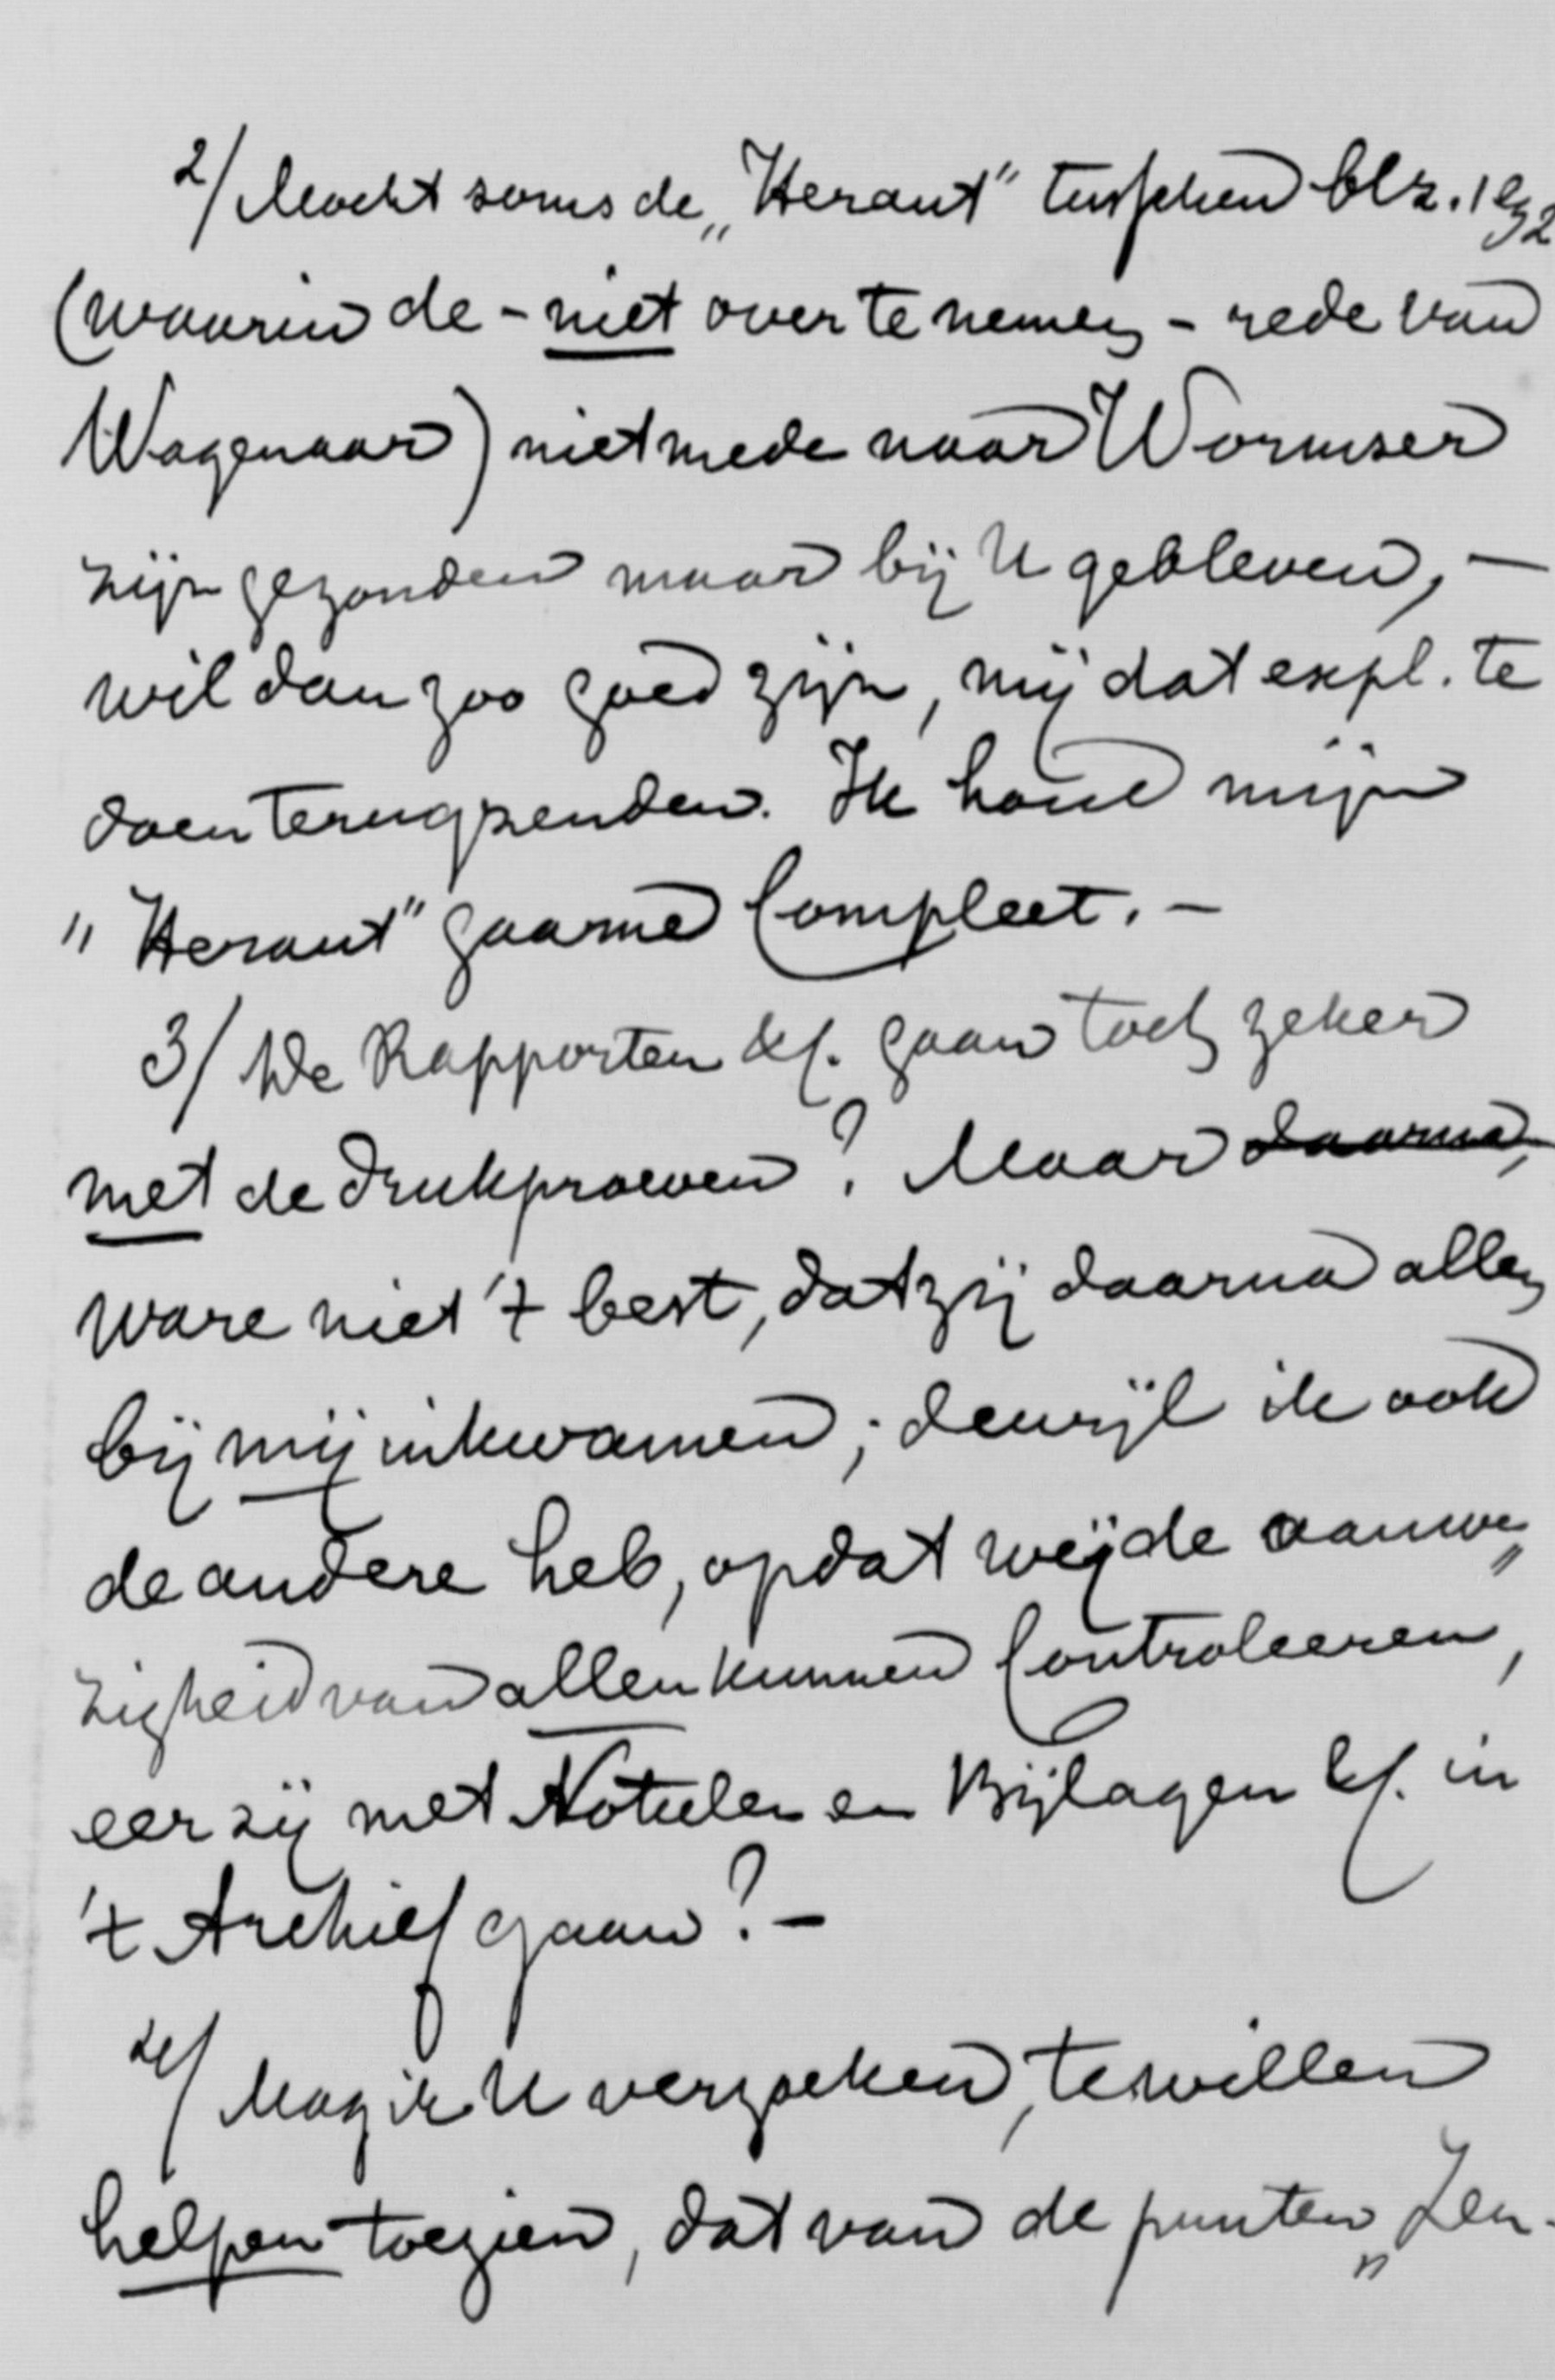 2/ Mocht soms de „Heraut" tusschen blz. 1 en 2
(waarin de - niet over te nemen - rede van
Wagenaar) niet mede naar Wormser
zijn gezonden maar bij U gebleven, —
wil dan zoo goed zijn, mij dat expl. te
doen terugzenden. Ik houd mijn
"Heraut" gaarne Compleet. —
3/ De Rapporten &c. gaan toch zeker
met de drukproeven? Maar daarna,
ware niet 't best, dat zij daarna allen
bij mij inkwamen; dewijl ik ook
de andere heb, opdat wij de aanwe„
zigheid van allen kunnen Controleeren,
eer zij met Notulen en Bijlagen &c. in
't Archief gaan? —
4/ Mag ik U verzoeken, te willen
helpen toezien, dat van de punten „Zen-